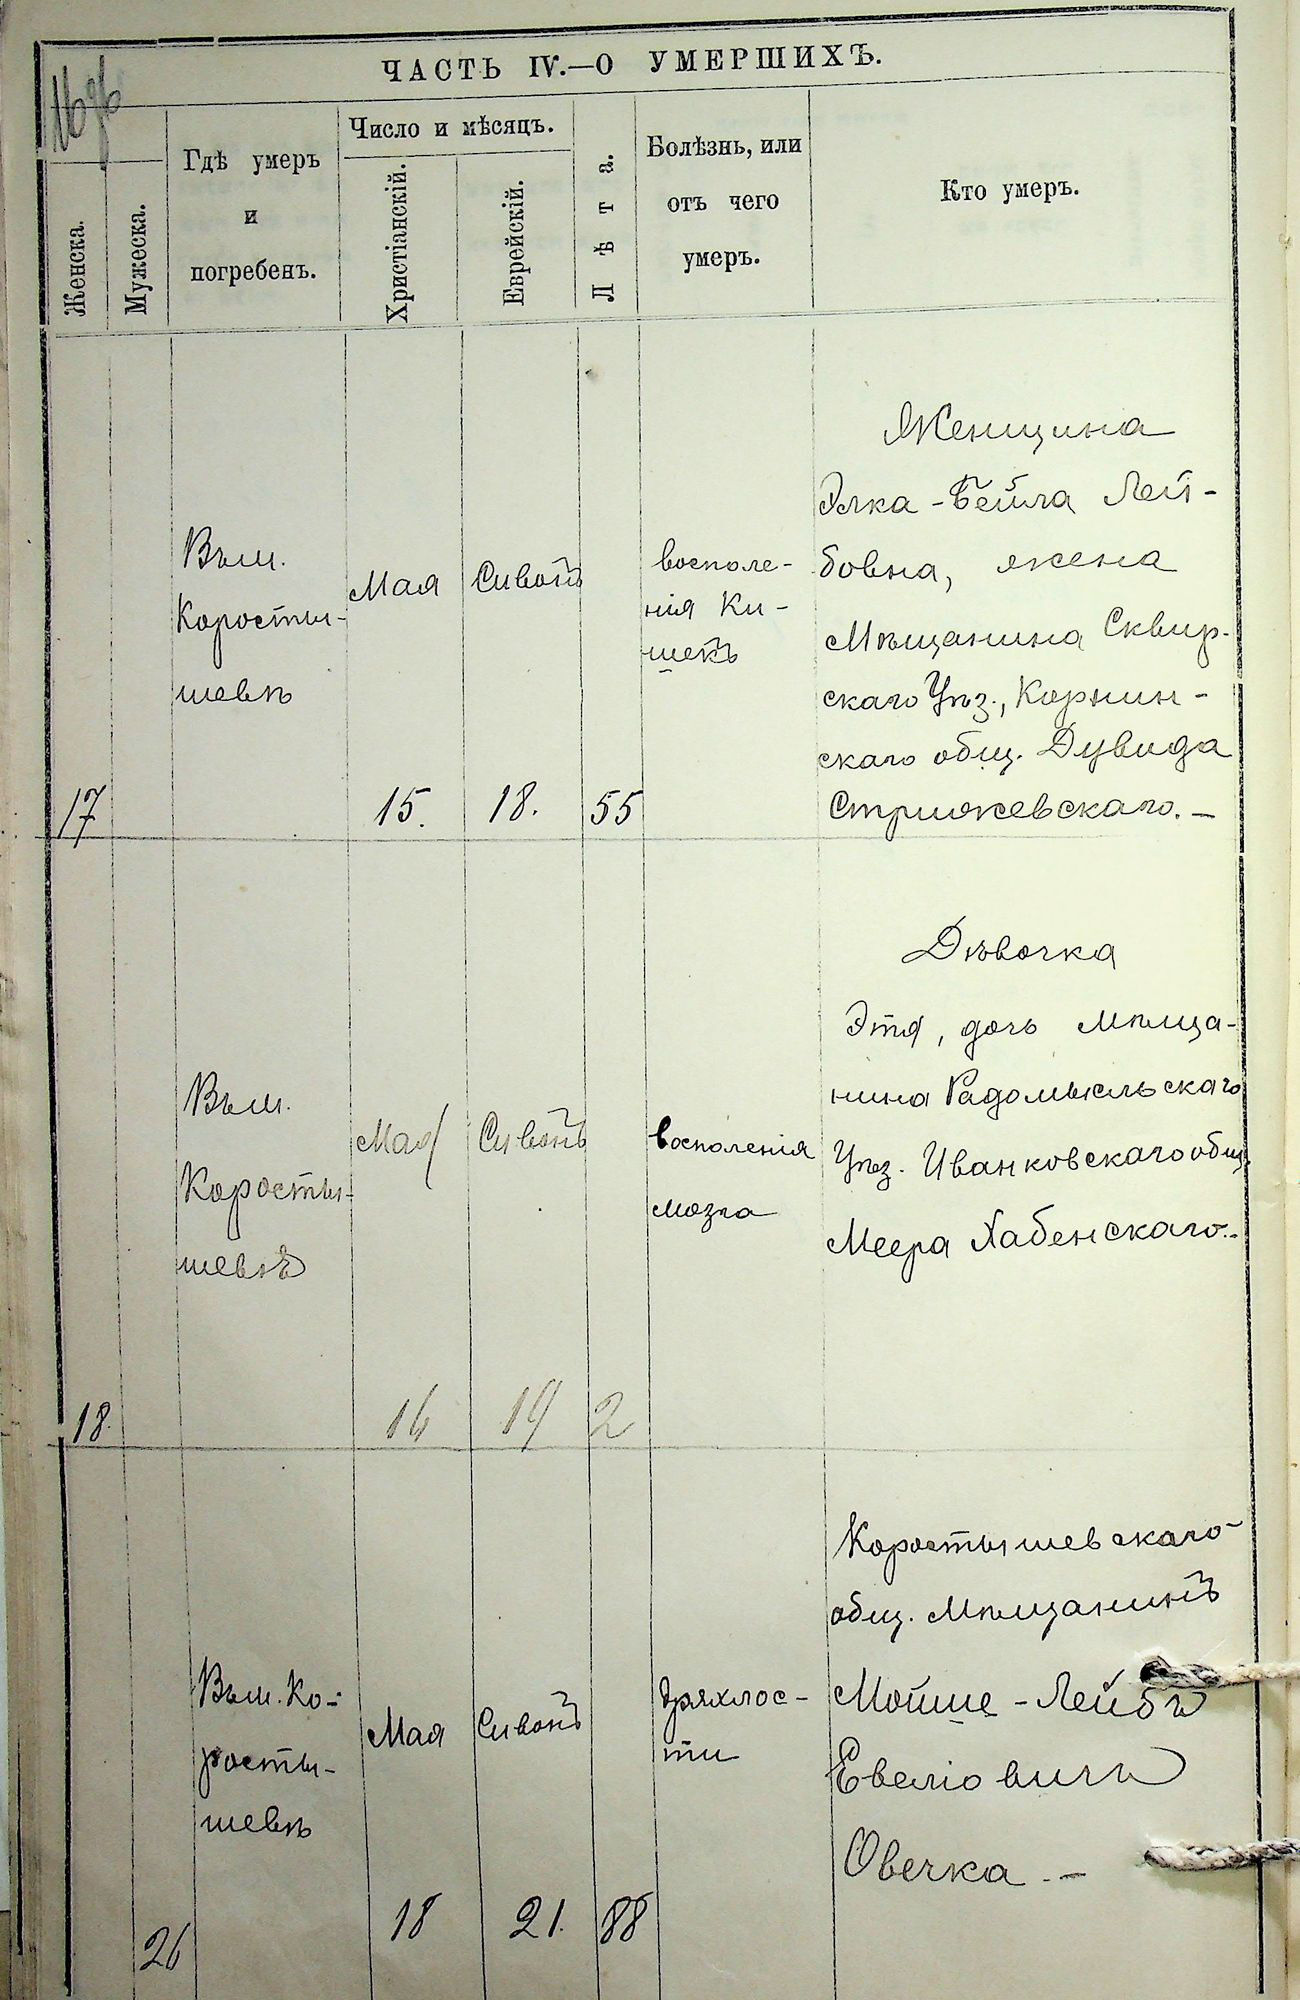 ЧАСТЬ IV.—О УМЕРШИХЪ.
Женска.
Мужеска.
Гдѣ умеръ
и
погребенъ.
Число и мѣсяцъ.
Христіанскій.
Еврейскій.
Лѣта.
Болѣзнь, или
отъ чего
умеръ.
Кто умеръ.
17
Въ м.
Коросты-
шевѣ
Мая
15.
Сивонъ
18.
55
восполе-
нія Ки-
шекъ
Женщина
Элка-Бейла Лей-
бовна, жена
Мѣщанина Сквир-
скаго Уѣз., Корнин-
скаго общ. Дувида
Стрижевскаго.—
18.
Въ м.
Коросты-
шевѣ
Мая
16
Сивонъ
19
2
восполенія
мозга
Дѣвочка
Этя, дочь Мѣща-
нина Радомысльскаго
Уѣз. Иванковскаго общ.
Меера Хабенскаго.-
26
Въ м. Ко-
росты-
шевѣ
Мая
18
Сивонъ
21.
88
дряхлос-
ти
Коростышевскаго
общ. Мѣщанинъ
Мойше-Лейбъ
Евеліовичъ
Овечка.—